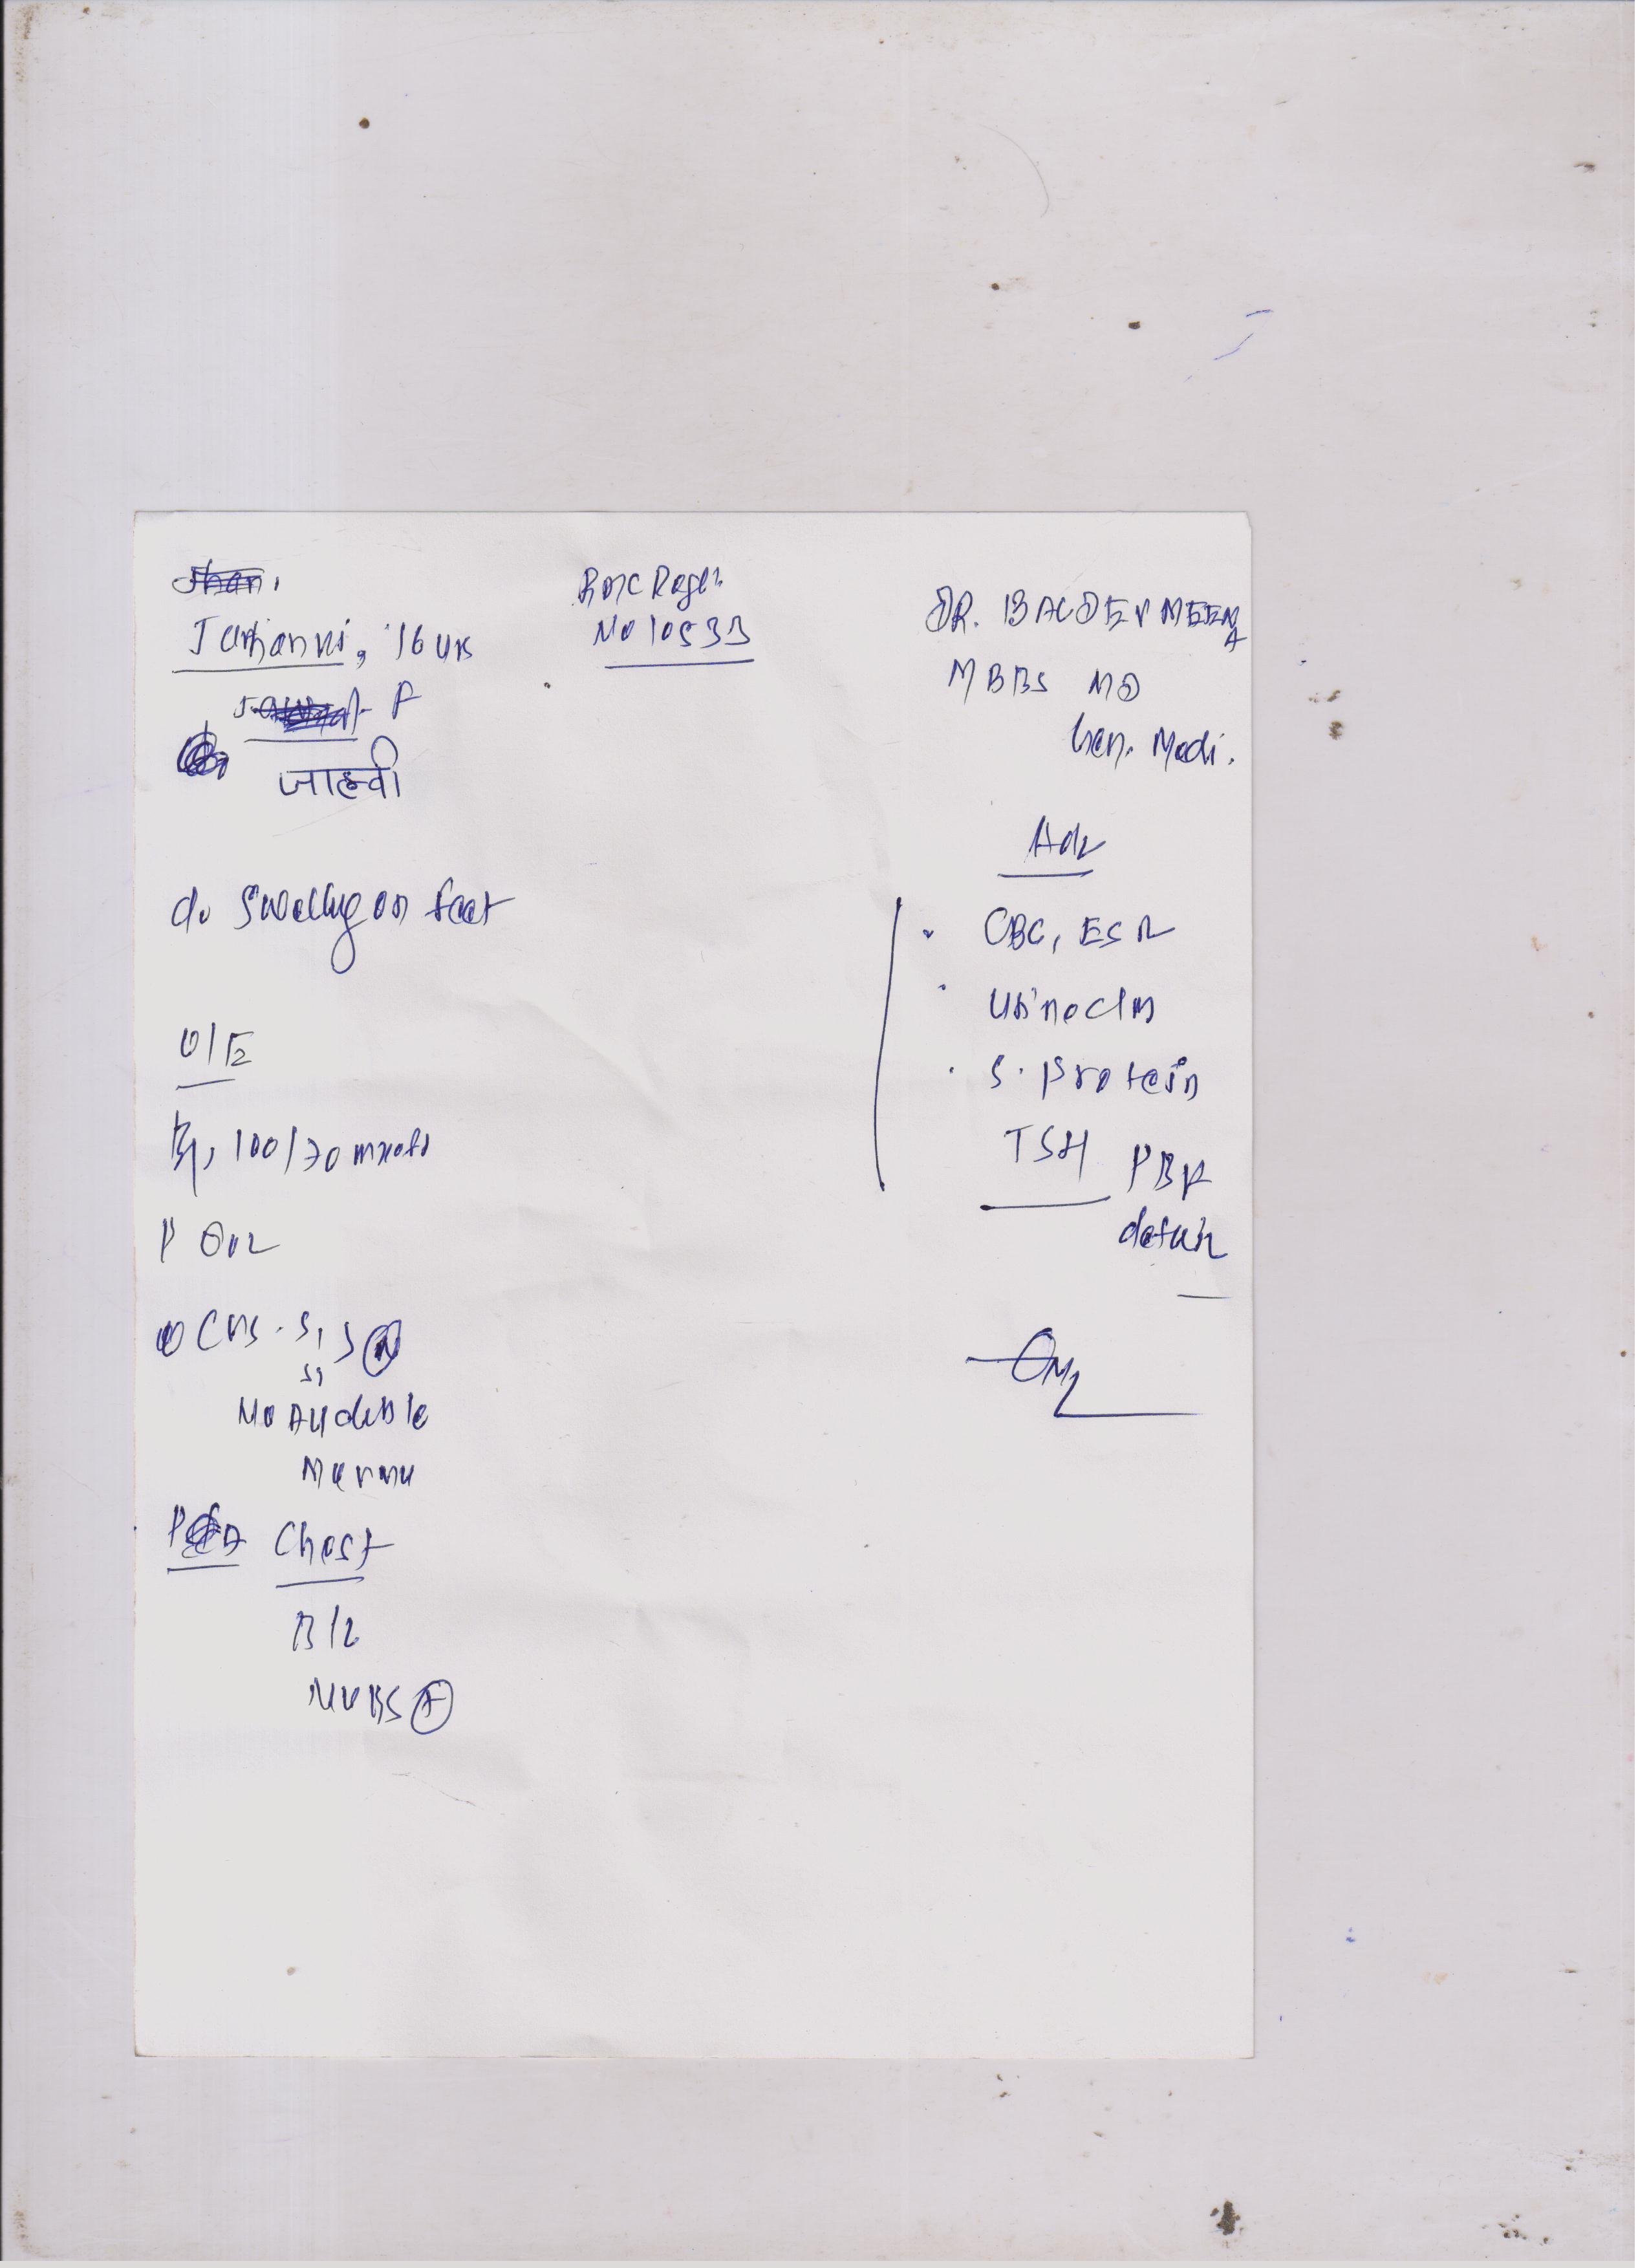 Jahanvi, 16 yrs
F
जाह्नवी
RMC Reg.
No 10533
DR. BALDEV MEENA
MBBS MD
Gen. Medi.
c/o Swelling on feet
O/E
BP, 100/70 mmHg
P
CVS . S1 S2 N
No Audible
Murmu
P/A Chest
B/L
NVBS +
Adv
CBC, ESR
Urine c/m
S. Protein
TSH PBF
detail